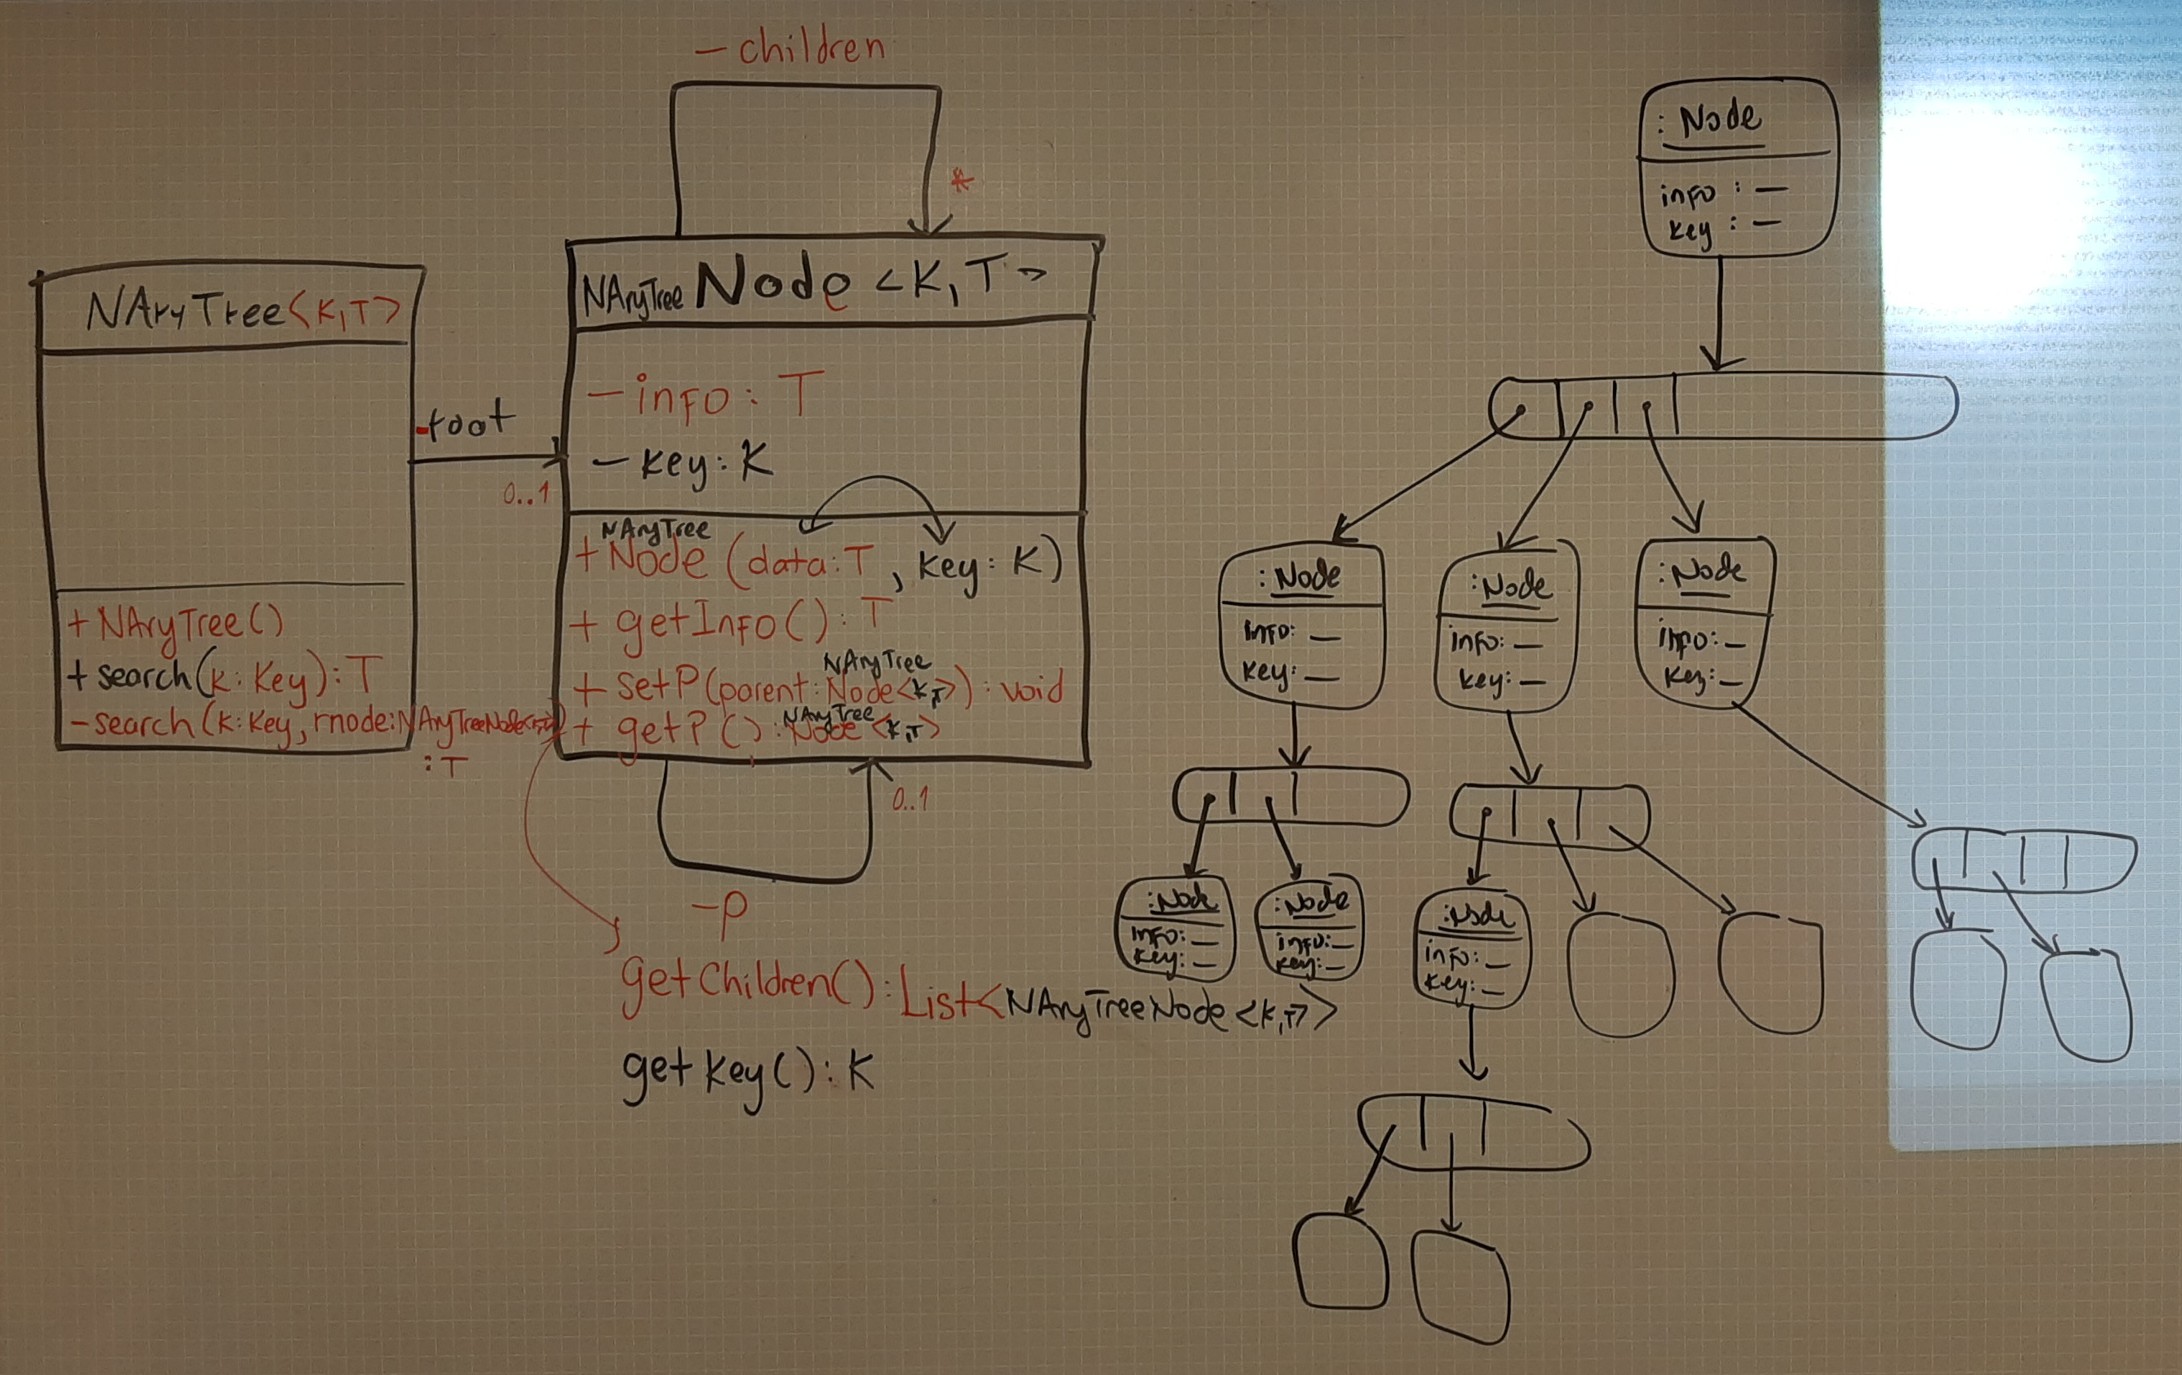 - children
*
NAryTree<K,T>
-root
0..1
+ NAryTree()
+ search(k: Key): T
- search(k: Key, rnode: NAryTreeNode<K,T>)
: T
NAryTree Node <K,T>
- info: T
- key: K
NAryTree
+ Node (data: T, key: K)
+ getInfo(): T
NAryTree
+ setP(parent: Node<K,T>): void
NAryTree
+ getP(): Node<K,T>
0..1
- p
getChildren(): List<NAryTreeNode<K,T>>
getKey(): K
: Node
info: —
key: —
: Node
info: —
key: —
: Node
info: —
key: —
: Node
info: —
key: —
: Node
info: —
key: —
: Node
info: —
key: —
: Node
info: —
key: —